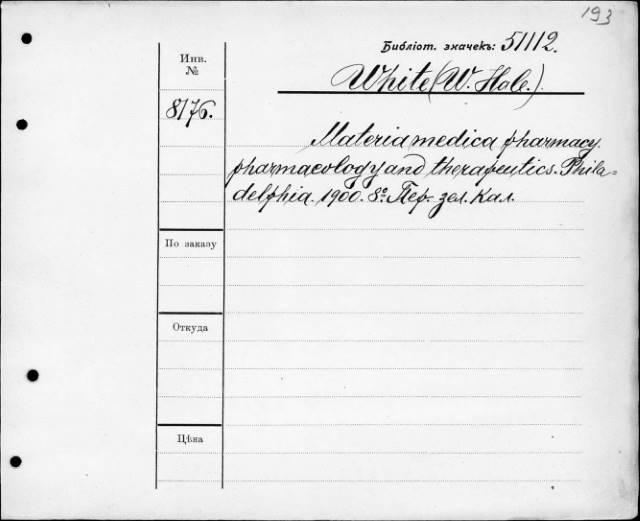 193
Библіот. значекъ: 51112.
Инв.
№
White (W. Hale.)
8176.
Materia medica pharmacy.
pharmacology and therapeutics. Phila-
delphia. 1900. 8º. Пер. зел. Кал.
По заказу
Откуда
Цѣна